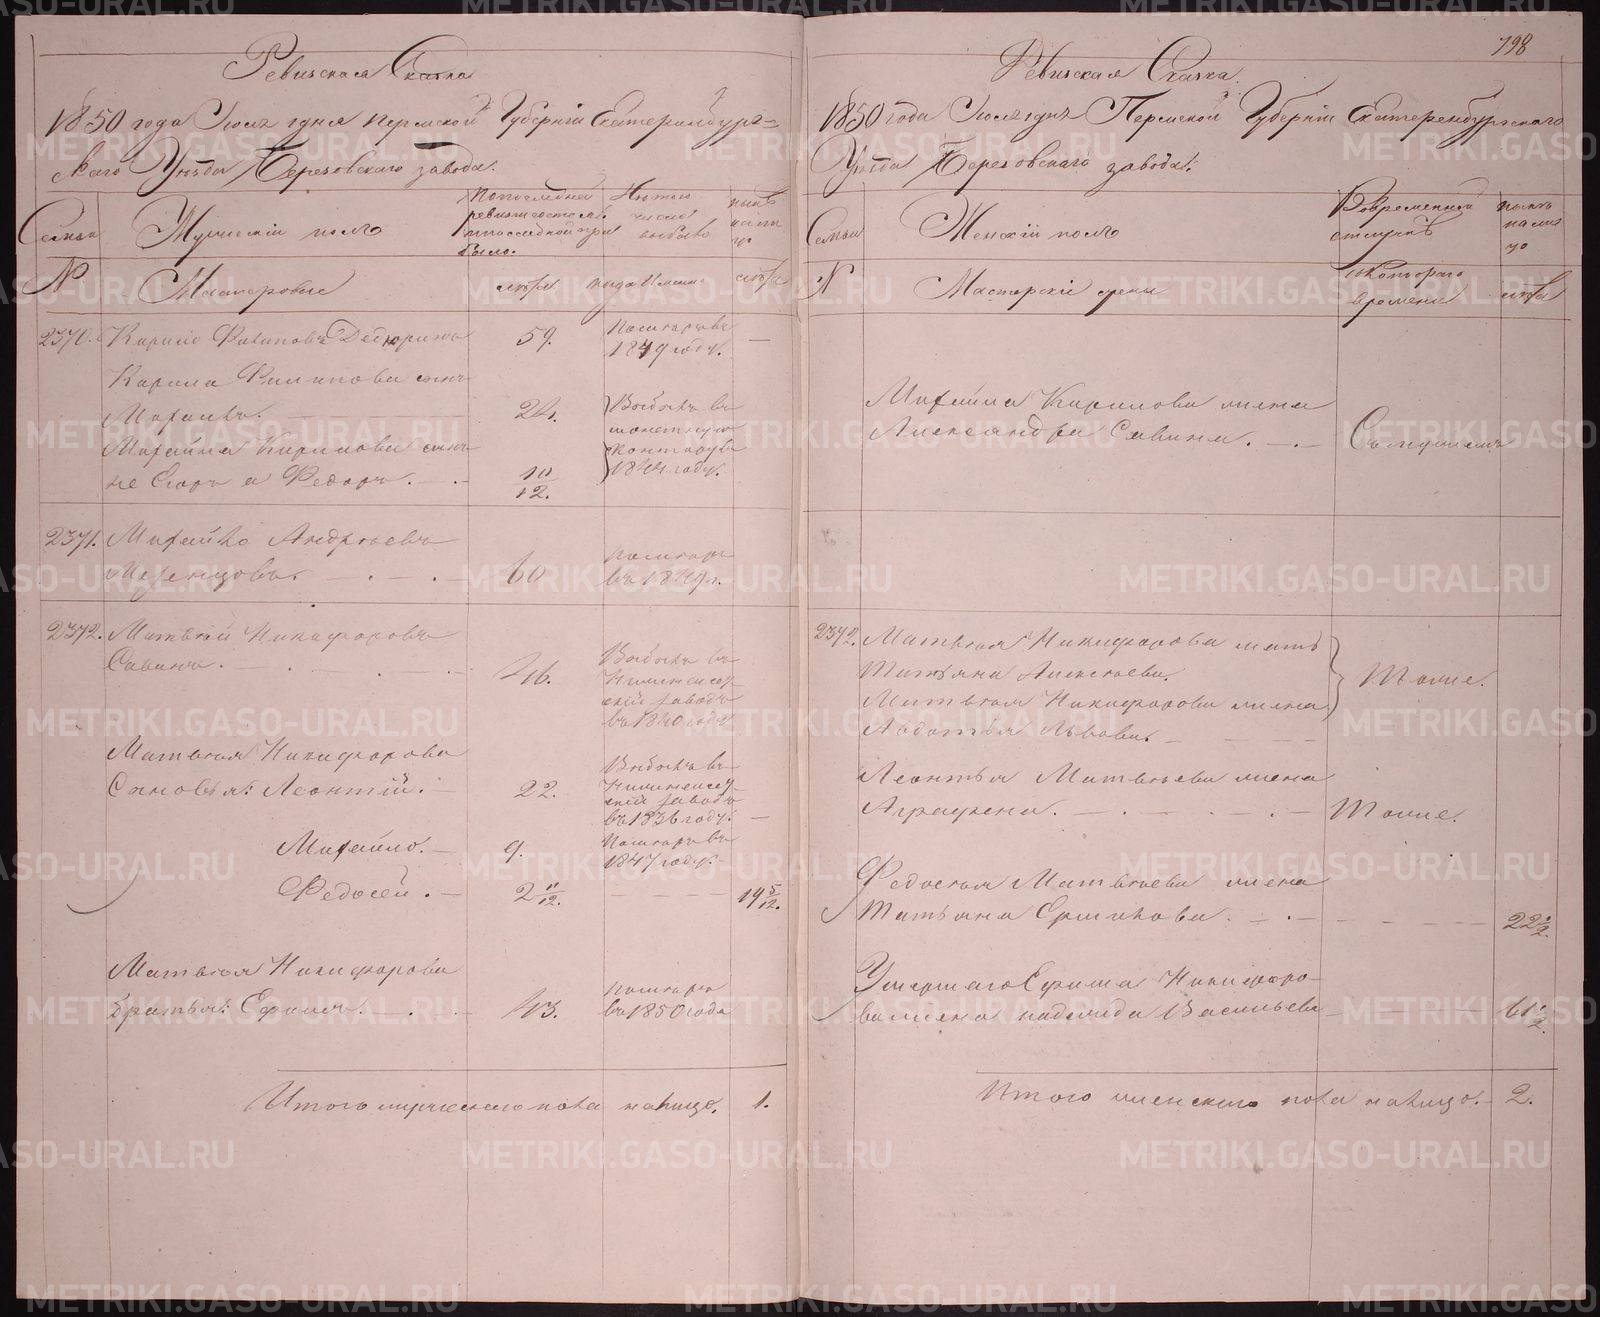 Ревизская Сказка
1850 года Июля дня Пермской Губернiи Екатеринбург=
скаго Уѣзда Березовскаго завода.
Семьи
Мужескiй полъ
По последней
ревизiи состояло
и последней при
было.
Из того
числа
выбыло
нынѣ
на ли
цо
№
Мастеровые
лѣта
когда именно
лѣта
2370.
Кирило Филиповъ Дедюринъ
59.
Померъ въ
1849 году.
Кирила Филипова сынъ
Михаилъ.
24.
Выбылъ въ
монетную
контору въ
году.
Михайла Кирилова сыно
ве Егоръ и Федоръ.
10/12.
2371.
Михайло Андреевъ
Мезенцовъ.
60
Померъ
въ 1849 г.
2372.
Матвей Никифоровъ
Савинъ.
46.
Выбылъ въ
Нижнеисет
скiй заводъ
въ 1840 году
Матвея Никифорова
Сыновья: Леонтiй.
22.
Выбылъ въ
Нижнеисет
скiй заводъ
въ 1836 году.
Михайло.
9.
Померъ въ
1847 году.
Федосей.
2 11/12.
19 5/12.
Матвея Никифорова
братья: Ефимъ.
43.
померъ
въ 1850 года
Итого мужескаго пола налицо.
1.
798
Ревизская Сказка.
1850 года Июля дня Пермской Губернiи Екатеренбургскаго
Уѣзда Березовскаго завода.
Семьи
Женскiй полъ
Вовременной
отлучкѣ
нынѣ
на ли
цо
№
Мастерскiе жены
скотораго
времени
лѣта
Михайла Кирилова жена
Александра Савина.
Съ мужемъ
2372.
Матвея Никифорова мать
Татьяна Алексеева.
Матвея Никифорова жена
Авдотья Львова.
Тоже.
Леонтья Матвеева жена
Аграфена.
Тоже.
Федосея Матвеева жена
Татьяна Ермакова.
22 1/2.
Умершаго Ефима Никифоро-
ва жена надежда Васильева
61 1/2.
Итого женскаго пола налицо.
2.
METRIKI.GASO-URAL.RU